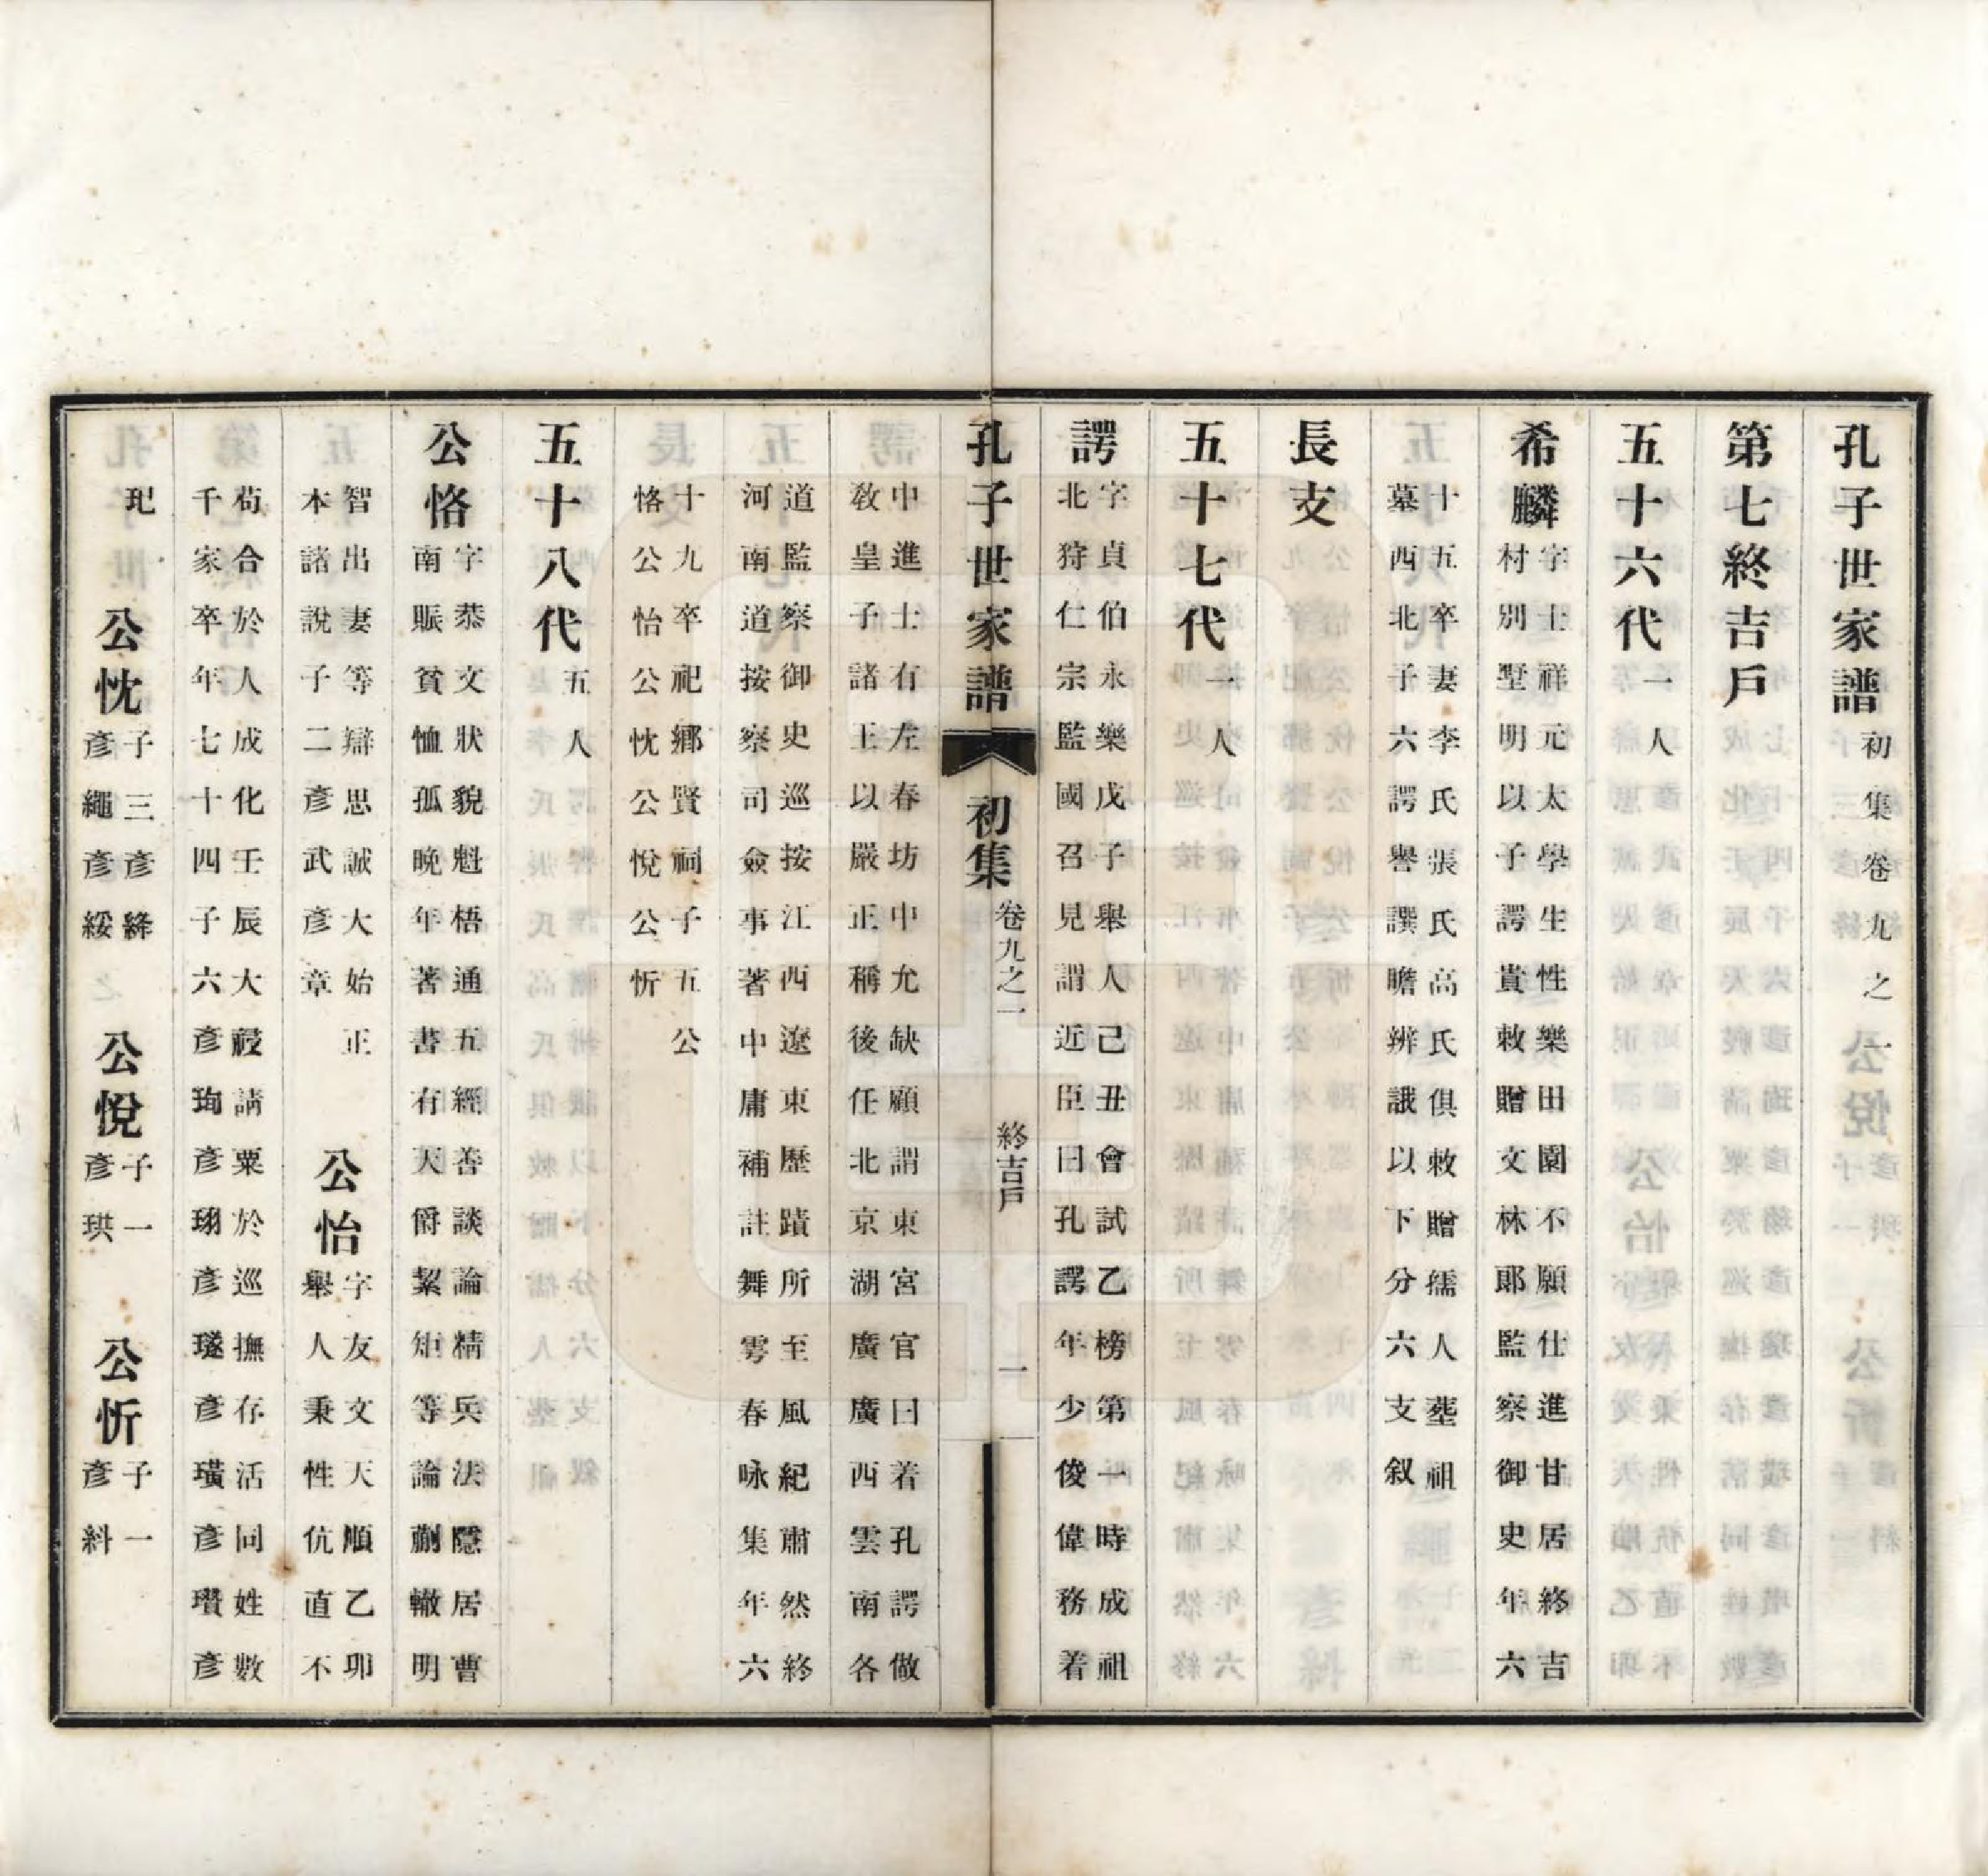 孔子世家譜初集卷九之一
第七終吉戶
五十六代一人
希麟字士祥元太學生性樂田園不願仕進甘居終吉
村別墅明以子諤貴敕贈文林郎監察御史年六
十五卒妻李氏張氏高氏俱敕贈孺人塟祖
墓西北子六諤譽譔瞻辨議以下分六支叙
長支
五十七代一人
諤字貞伯永樂戊子舉人己丑會試乙榜第一時成祖
北狩仁宗監國召見謂近臣曰孔諤年少俊偉務着
孔子世家譜 初集 卷九之一 終吉戶 一
中進士有左春坊中允缺顧謂東宮官曰着孔諤做
敎皇子諸王以嚴正稱後任北京湖廣廣西雲南各
道監察御史巡按江西遼東歷蹟所至風紀肅然終
河南道按察司僉事著中庸補註舞雩春咏集年六
十九卒祀鄉賢祠子五公
恪公怡公忱公悅公忻
五十八代五人
公恪字恭文狀貌魁梧通五經善談論精兵法隱居曹
南賑貧恤孤晩年著書有天爵絜矩等論蒯轍明
智出妻等辯思誠大始正
本諸說子二彥武彥章
公怡字友文天順乙卯
舉人秉性伉直不
苟合於人成化壬辰大祲請粟於巡撫存活同姓數
千家卒年七十四子六彥珣彥珝彥璲彥璜彥瓚彥
玘
公忱子三彥絳
彥繩彥綏
公悅子一
彥珙
公忻子一
彥紏